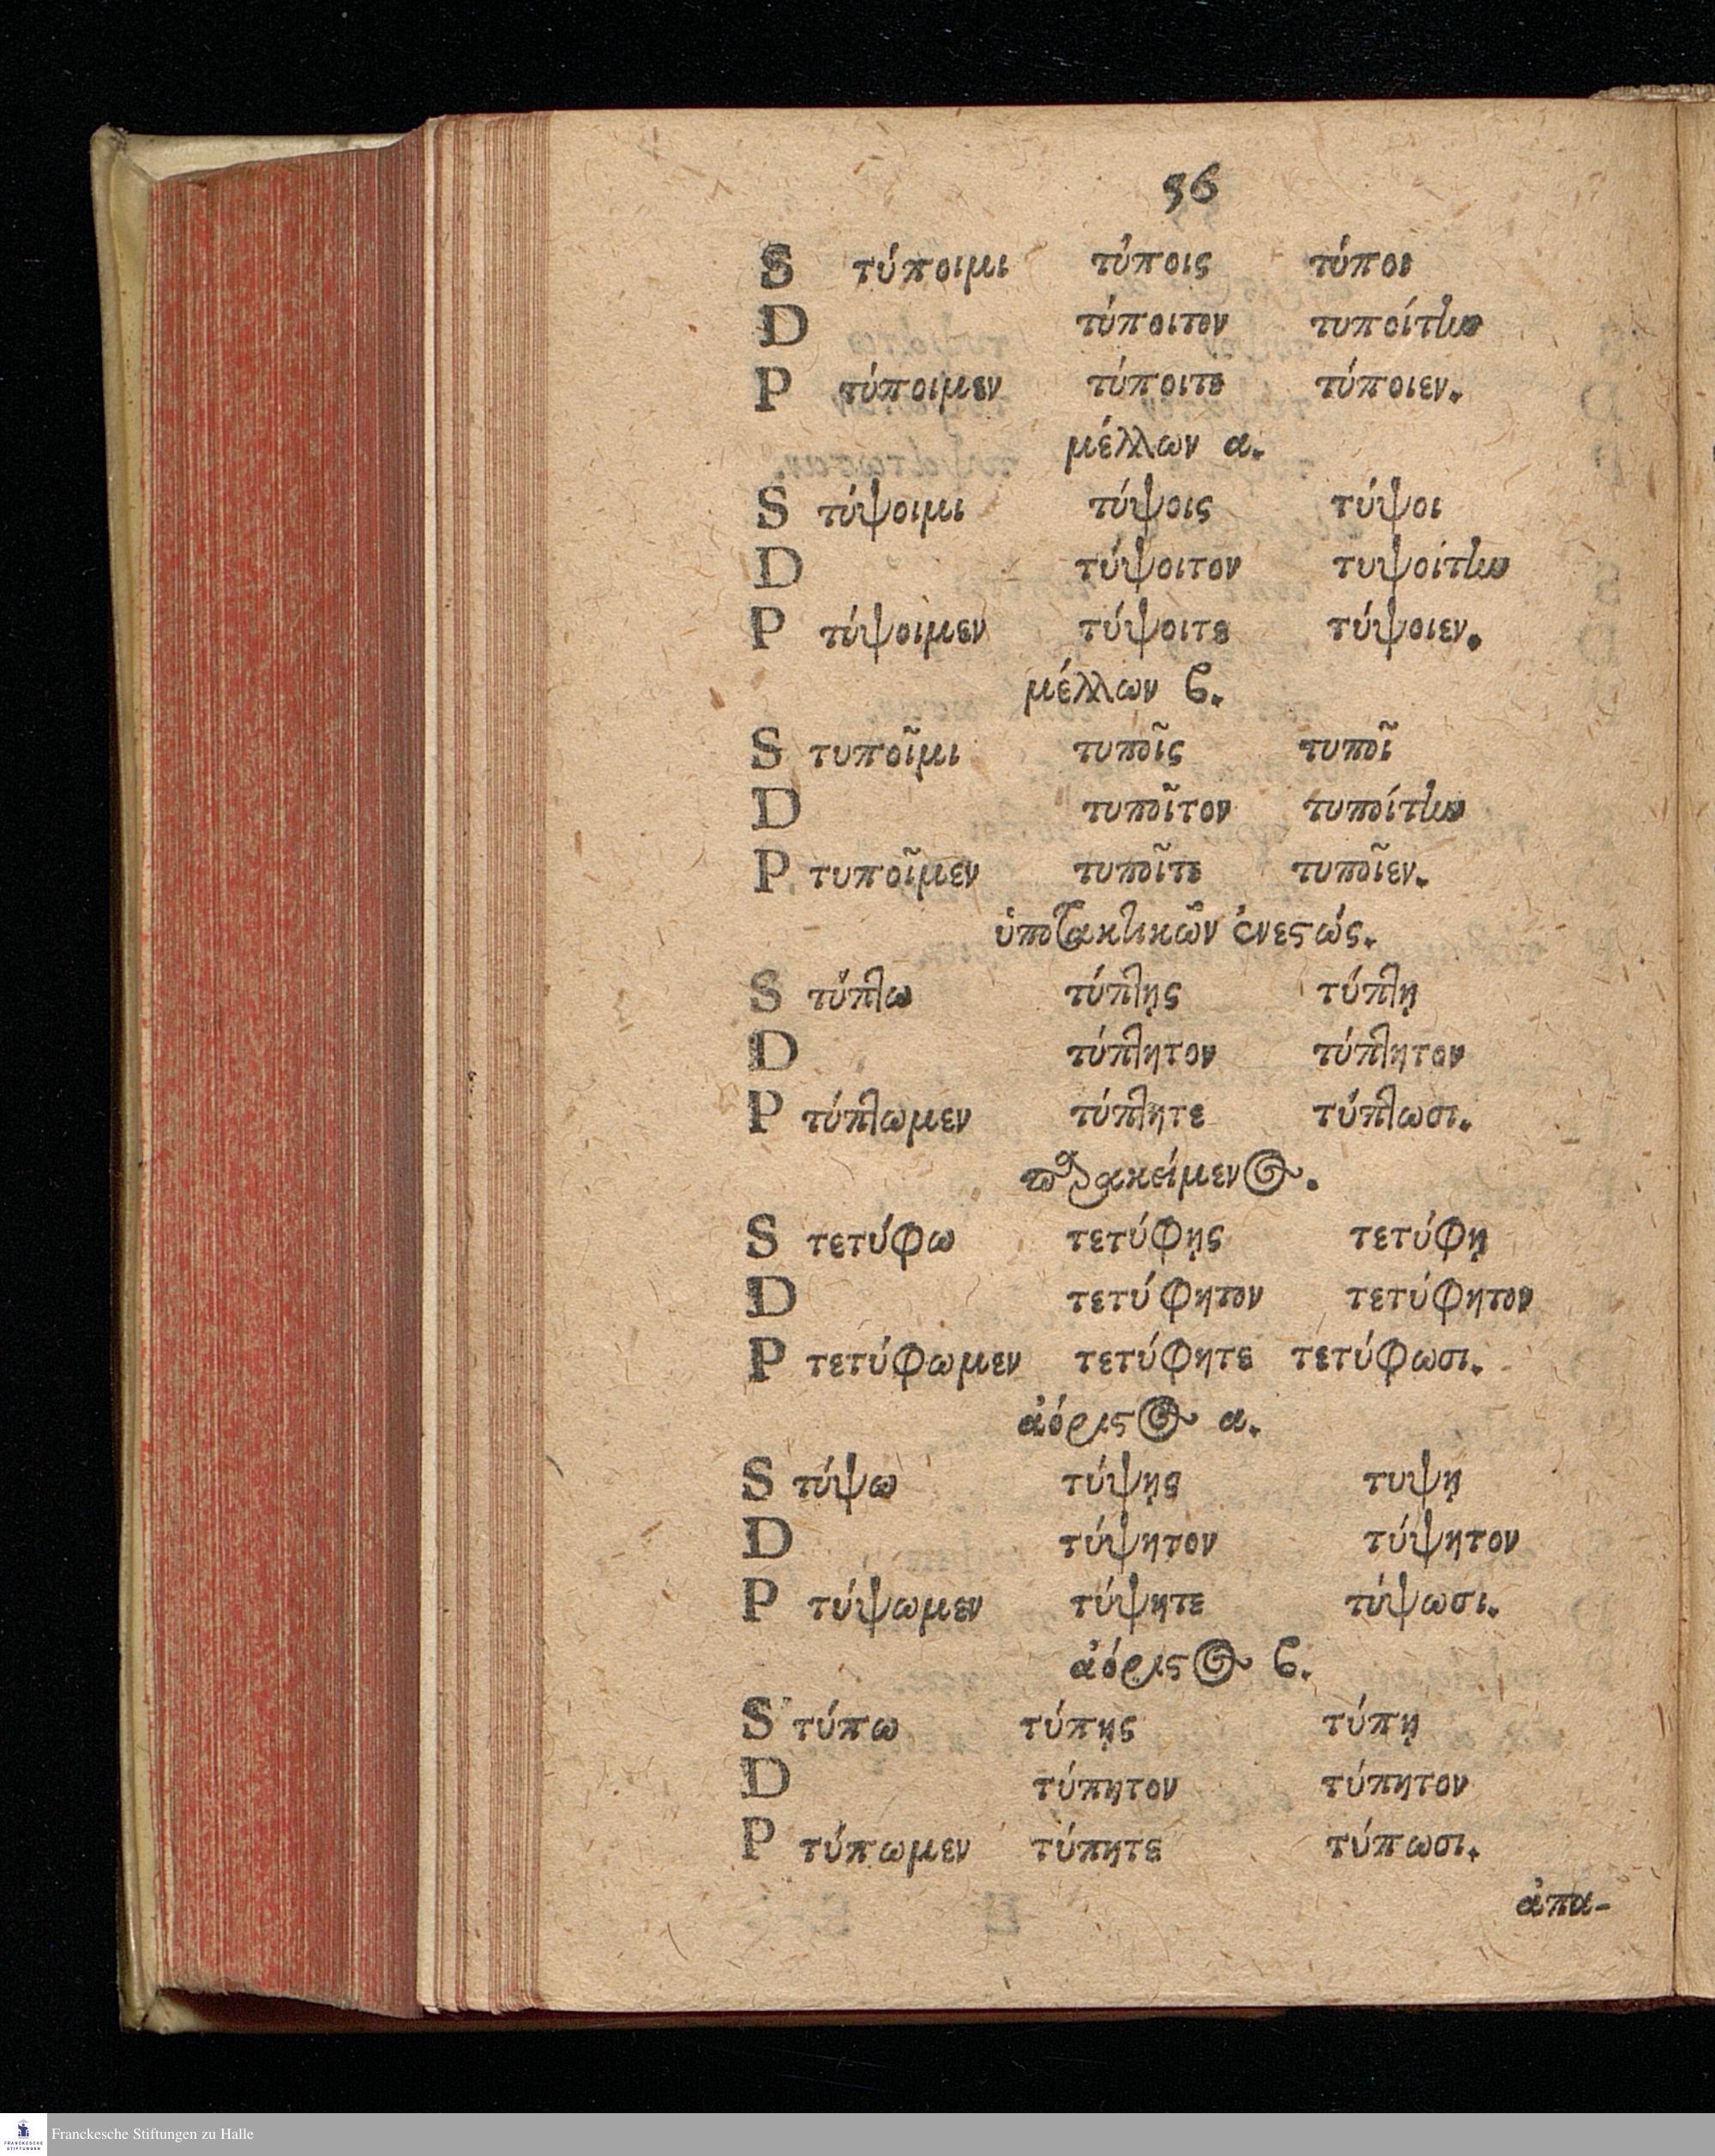 56
S τύποιμι τύποις τύποι
D τύποιτον τυποίτην
P τύποιμεν τύποιτε τύποιεν.
μέλλων α.
S τύψοιμι τύψοις τύψοι
D τύψοιτον τυψοίτην
P τύψοιμεν τύψοιτε τύψοιεν.
μέλλων ϐ.
S τυποῖμι τυποῖς τυποῖ
D τυποῖτον τυποίτην
P τυποῖμεν τυποῖτε τυποῖεν.
ὑποτακτικῶν ἐνεϛώς.
S τύπτω τύπτῃς τύπτῃ
D τύπτητον τύπτητον
P τύπτωμεν τύπτητε τύπτωσι.
παρακείμενος.
S τετύφω τετύφῃς τετύφῃ
D τετύφητον τετύφητον
P τετύφωμεν τετύφητε τετύφωσι.
ἀόριϛος α.
S τύψω τύψῃς τυψῃ
D τύψητον τύψητον
P τύψωμεν τύψητε τύψωσι.
ἀόριϛος ϐ.
S τύπω τύπῃς τύπῃ
D τύπητον τύπητον
P τύπωμεν τύπητε τύπωσι.
ἀπα-
FRANCKESCHE STIFTUNGEN
Franckesche Stiftungen zu Halle